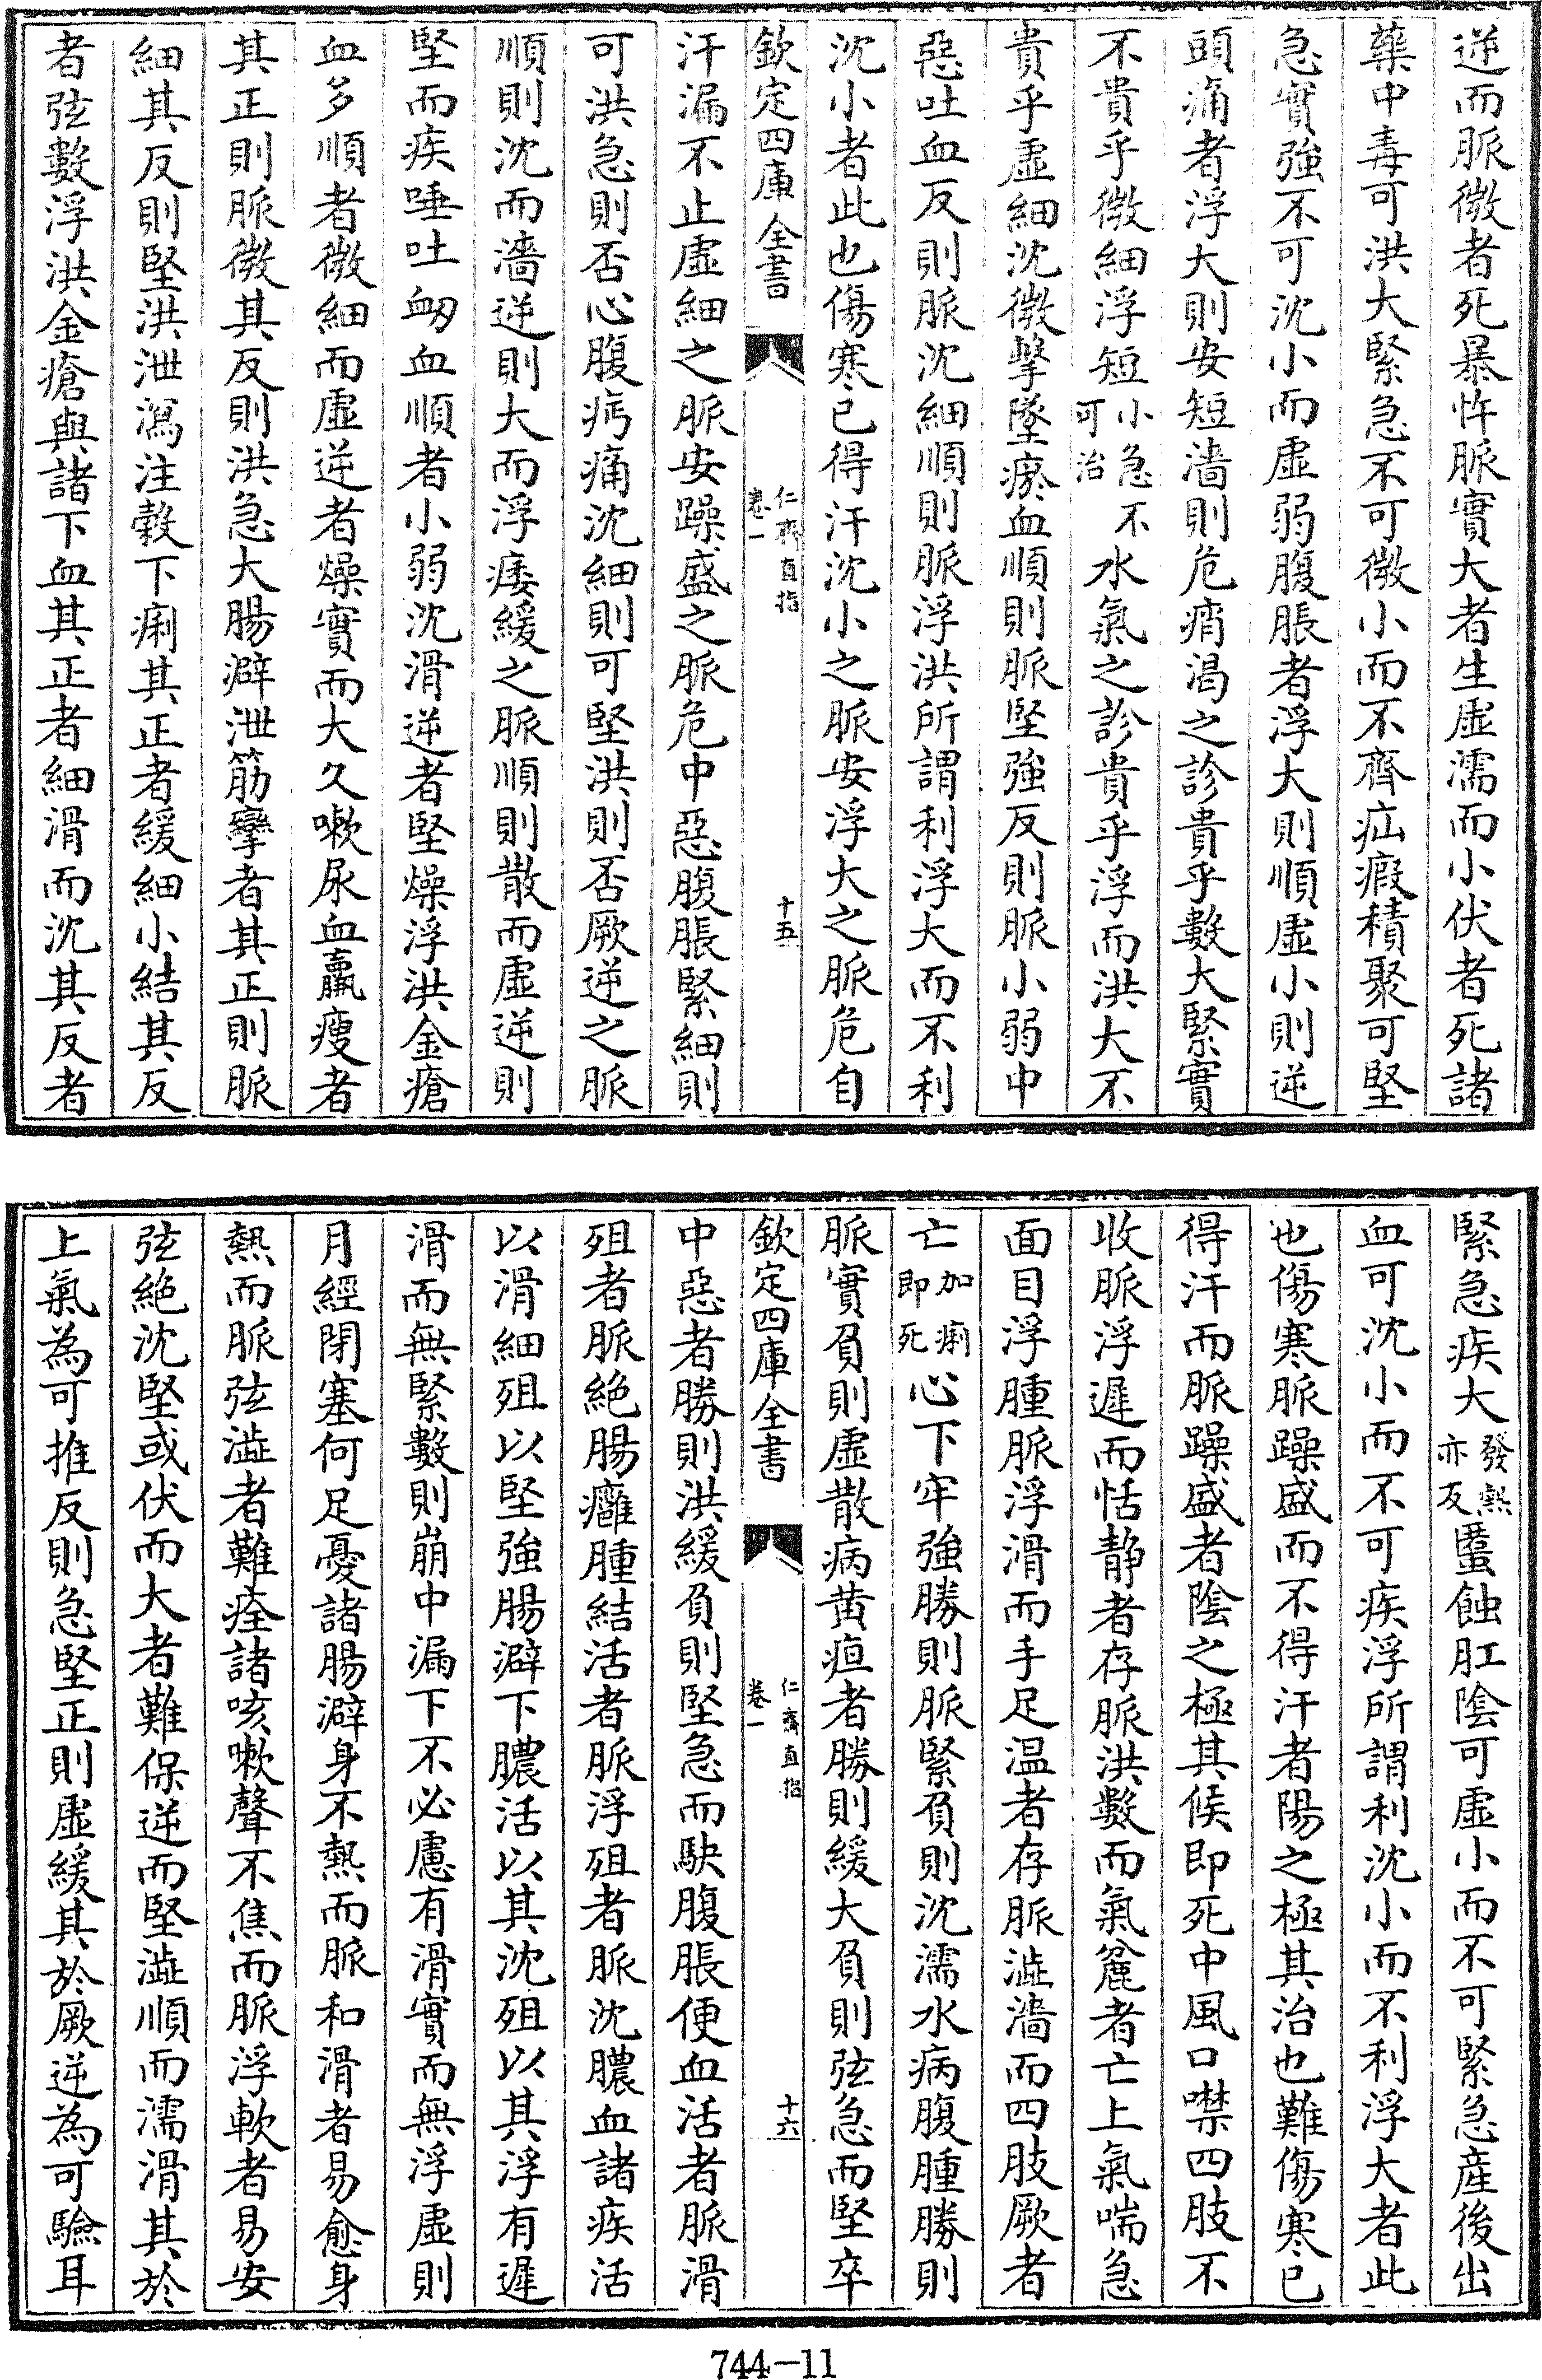 逆而脈微者死暴忤脈實大者生虛濡而小伏者死諸
藥中毒可洪大緊急不可微小而不齊疝瘕積聚可堅
急實強不可沈小而虛弱腹脹者浮大則順虛小則逆
頭痛者浮大則安短濇則危痟渴之診貴乎數大緊實
不貴乎微細浮短小急不可治水氣之診貴乎浮而洪大不
貴乎虛細沈微擊墜瘀血順則脈堅強反則脈小弱中
惡吐血反則脈沈細順則脈浮洪所謂利浮大而不利
沈小者此也傷寒已得汗沈小之脈安浮大之脈危自
欽定四庫全書 仁齋直指 卷一 十五
汗漏不止虛細之脈安躁盛之脈危中惡腹脹緊細則
可洪急則否心腹疞痛沈細則可堅洪則否厥逆之脈
順則沈而濇逆則大而浮痿緩之脈順則散而虛逆則
堅而疾唾吐衂血順者小弱沈滑逆者堅燥浮洪金瘡
血多順者微細而虛逆者燥實而大久嗽尿血羸瘦者
其正則脈微其反則洪急大腸癖泄筋攣者其正則脈
細其反則堅洪泄瀉注穀下痢其正者緩細小結其反
者弦數浮洪金瘡與諸下血其正者細滑而沈其反者
緊急疾大發熱亦反䘌蝕肛陰可虛小而不可緊急産後出
血可沈小而不可疾浮所謂利沈小而不利浮大者此
也傷寒脈躁盛而不得汗者陽之極其治也難傷寒已
得汗而脈躁盛者陰之極其候即死中風口噤四肢不
收脈浮遲而恬静者存脈洪數而氣麄者亡上氣喘急
面目浮腫脈浮滑而手足温者存脈澁濇而四肢厥者
亡加痢即死心下牢強勝則脈緊負則沈濡水病腹腫勝則
脈實負則虛散病黄疸者勝則緩大負則弦急而堅卒
欽定四庫全書 仁齋直指 卷一 十六
中惡者勝則洪緩負則堅急而駃腹脹便血活者脈滑
殂者脈絶腸癰腫結活者脈浮殂者脈沈膿血諸疾活
以滑細殂以堅強腸澼下膿活以其沈殂以其浮有遲
滑而無緊數則崩中漏下不必慮有滑實而無浮虛則
月經閉塞何足憂諸腸澼身不熱而脈和滑者易愈身
熱而脈弦澁者難痊諸咳嗽聲不焦而脈浮軟者易安
弦絶沈堅或伏而大者難保逆而堅澁順而濡滑其於
上氣為可推反則急堅正則虛緩其於厥逆為可驗耳
744-11